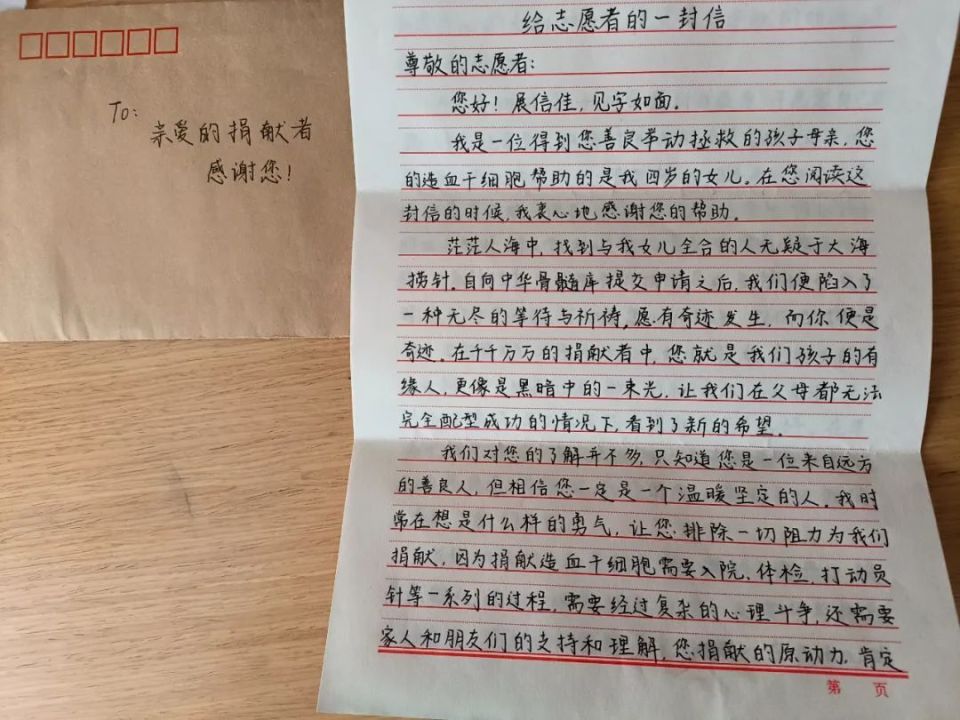 To:
亲爱的捐献者
感谢您!
给志愿者的一封信
尊敬的志愿者:
您好!展信佳,见字如面。
我是一位得到您善良举动拯救的孩子母亲,您
的造血干细胞帮助的是我四岁的女儿。在您阅读这
封信的时候,我衷心地感谢您的帮助。
茫茫人海中,找到与我女儿全合的人无疑于大海
捞针。自向中华骨髓库提交申请之后,我们便陷入了
一种无尽的等待与祈祷,愿有奇迹发生,而你便是
奇迹。在千千万万的捐献者中,您就是我们孩子的有
缘人,更像是黑暗中的一束光,让我们在父母都无法
完全配型成功的情况下,看到了新的希望。
我们对您的了解并不多,只知道您是一位来自远方
的善良人,但相信您一定是一个温暖坚定的人。我时
常在想是什么样的勇气,让您排除一切阻力为我们
捐献,因为捐献造血干细胞需要入院、体检、打动员
针等一系列的过程,需要经过复杂的心理斗争,还需要
家人和朋友们的支持和理解,您捐献的原动力,肯定
第 页